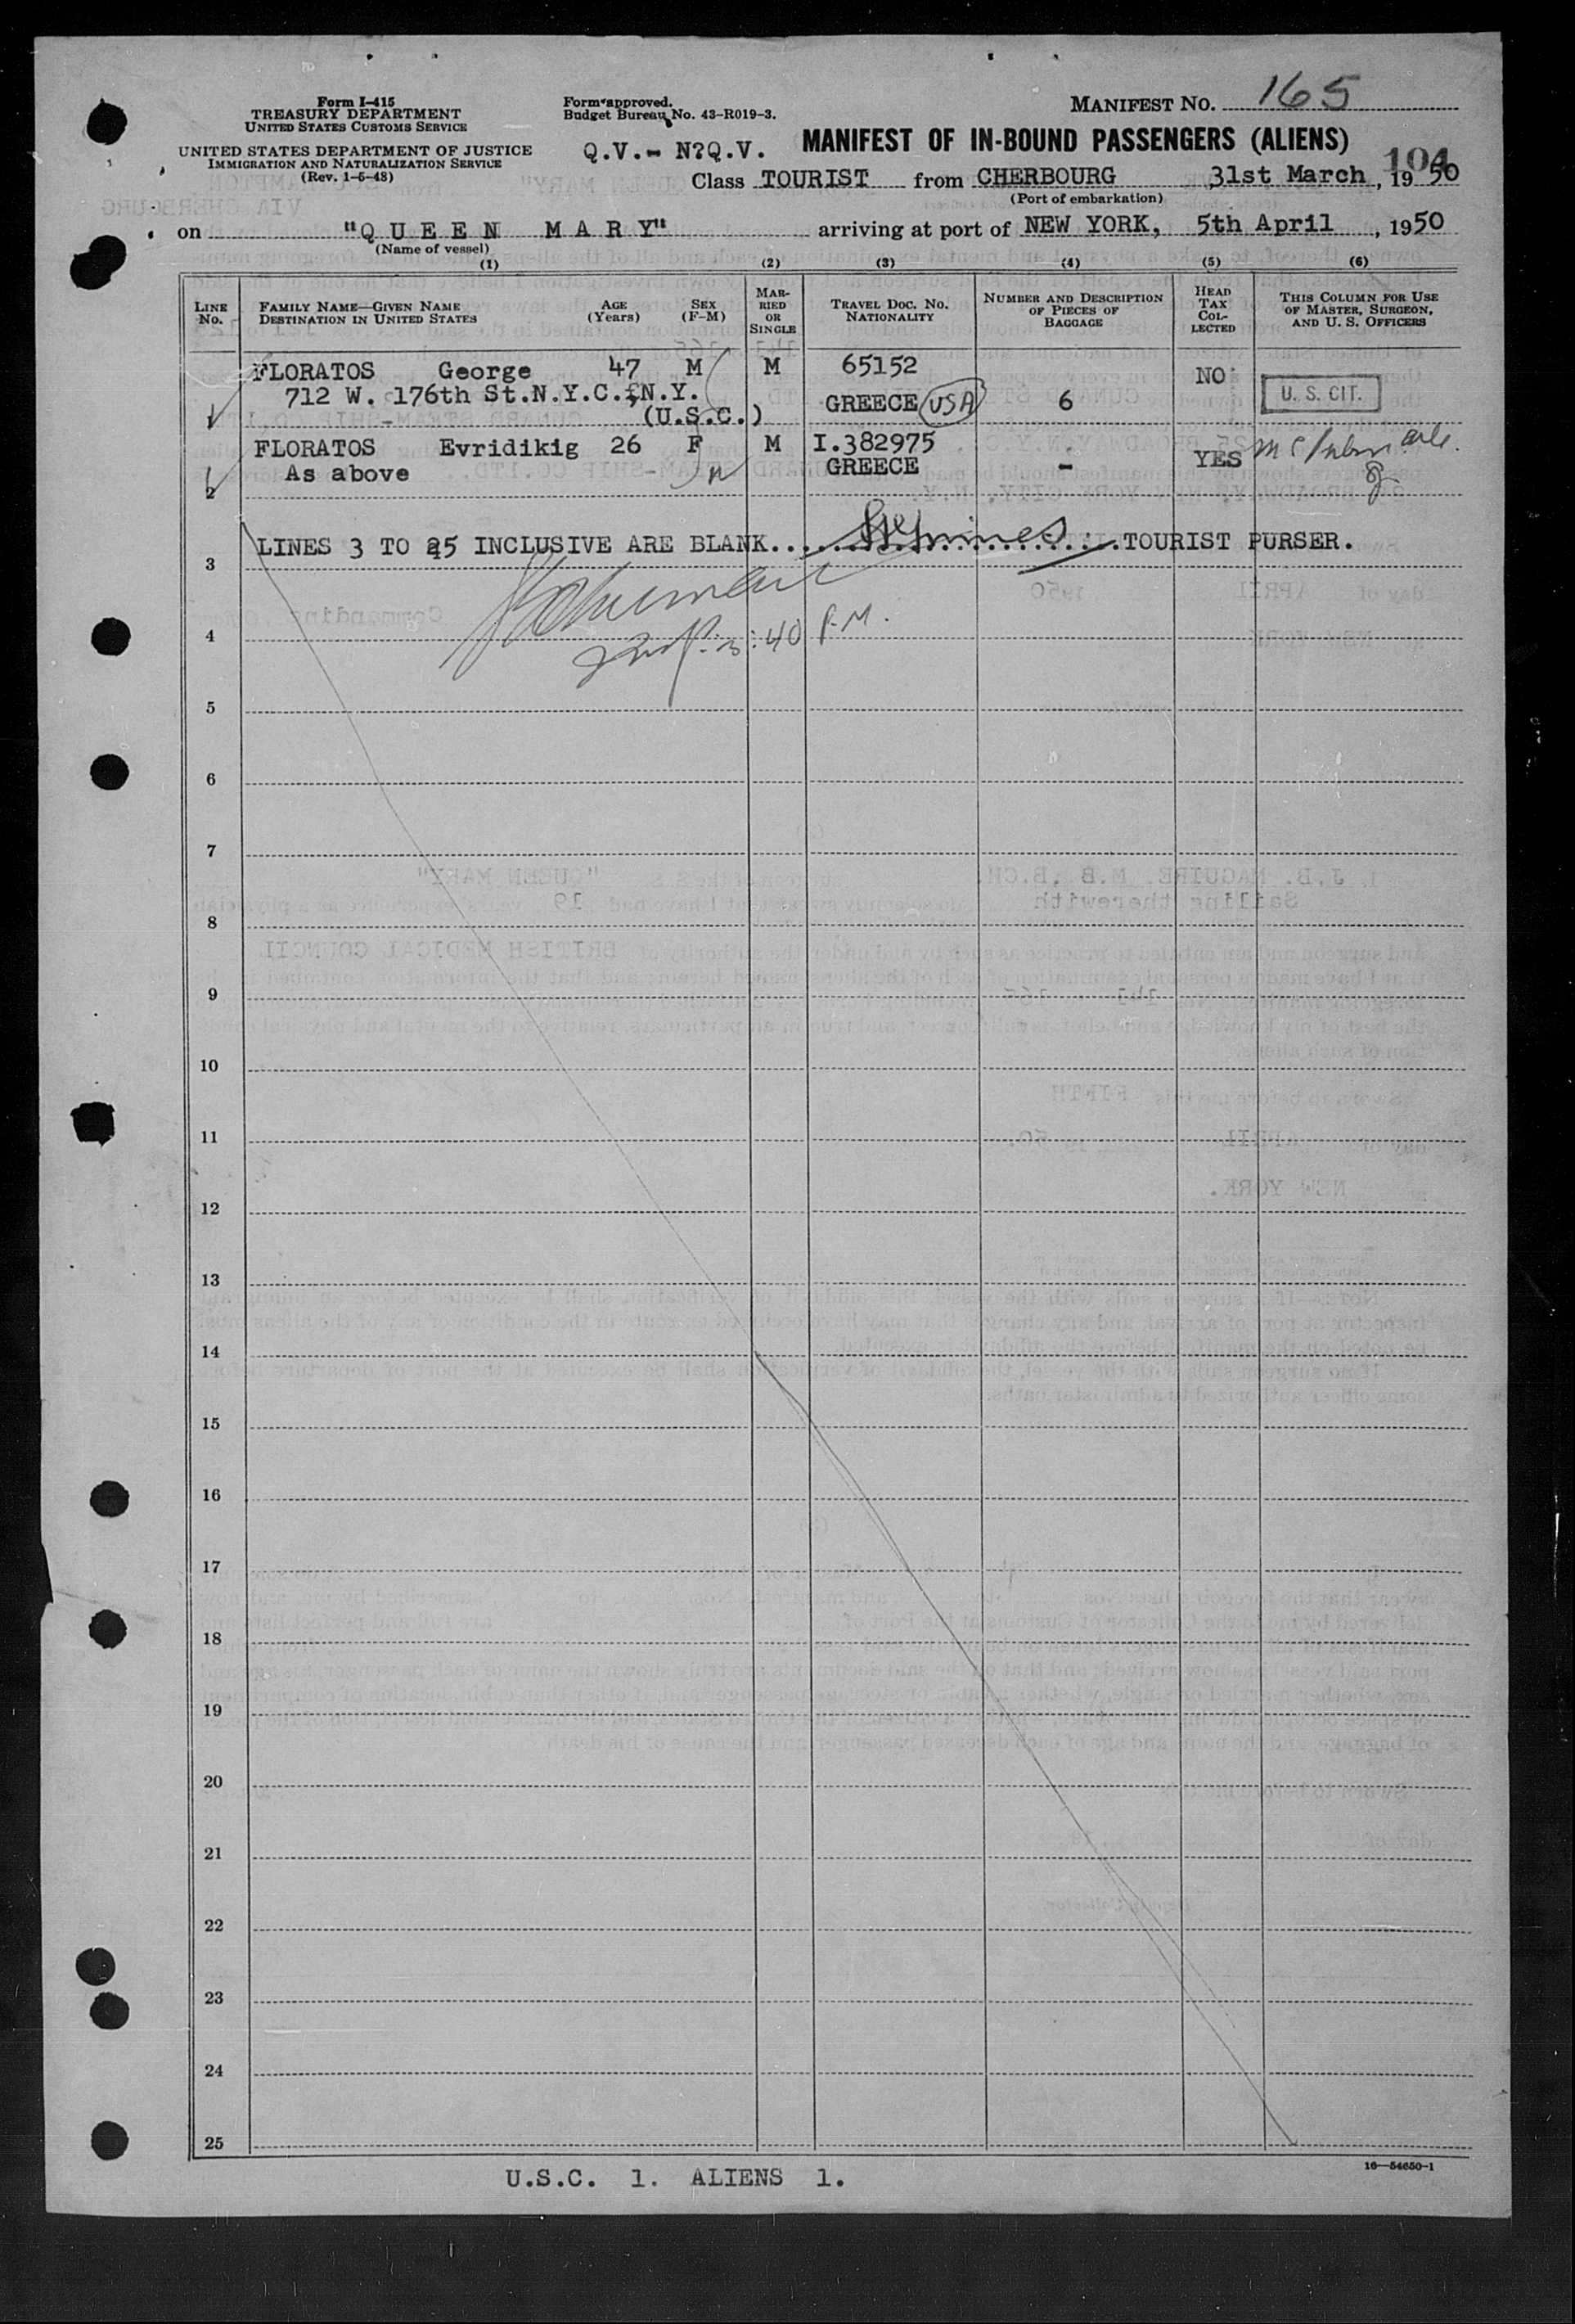 Form I-415
TREASURY DEPARTMENT
UNITED STATES CUSTOMS SERVICE
UNITED STATES DEPARTMENT OF JUSTICE
IMMIGRATION AND NATURALIZATION SERVICE
(Rev. 1-5-48)
Form approved.
Budget Bureau No. 43-R019-3.
Q.V.- N?Q.V.
MANIFEST NO. 165
MANIFEST OF IN-BOUND PASSENGERS (ALIENS)
104
Class TOURIST from CHERBOURG 31st March, 1950
(Port of embarkation)
on "QUEEN MARY" arriving at port of NEW YORK, 5th April, 1950
(Name of vessel)
(1) (2) (3) (4) (5) (6)
LINE No. FAMILY NAME—GIVEN NAME DESTINATION IN UNITED STATES AGE (Years) SEX (F-M) MARRIED OR SINGLE TRAVEL DOC. NO. NATIONALITY NUMBER AND DESCRIPTION OF PIECES OF BAGGAGE HEAD TAX COLLECTED THIS COLUMN FOR USE OF MASTER, SURGEON, AND U. S. OFFICERS
FLORATOS George 47 M M 65152 NO
712 W. 176th St.N.Y.C. N.Y. GREECE USA 6 U. S. CIT.
1 (U.S.C.)
FLORATOS Evridikig 26 F M I.382975 YES
As above GREECE -
2
LINES 3 TO 25 INCLUSIVE ARE BLANK. TOURIST PURSER.
3
3:40 P.M.
4
5
6
7
8
9
10
11
12
13
14
15
16
17
18
19
20
21
22
23
24
25
16—54650-1
U.S.C. 1. ALIENS 1.